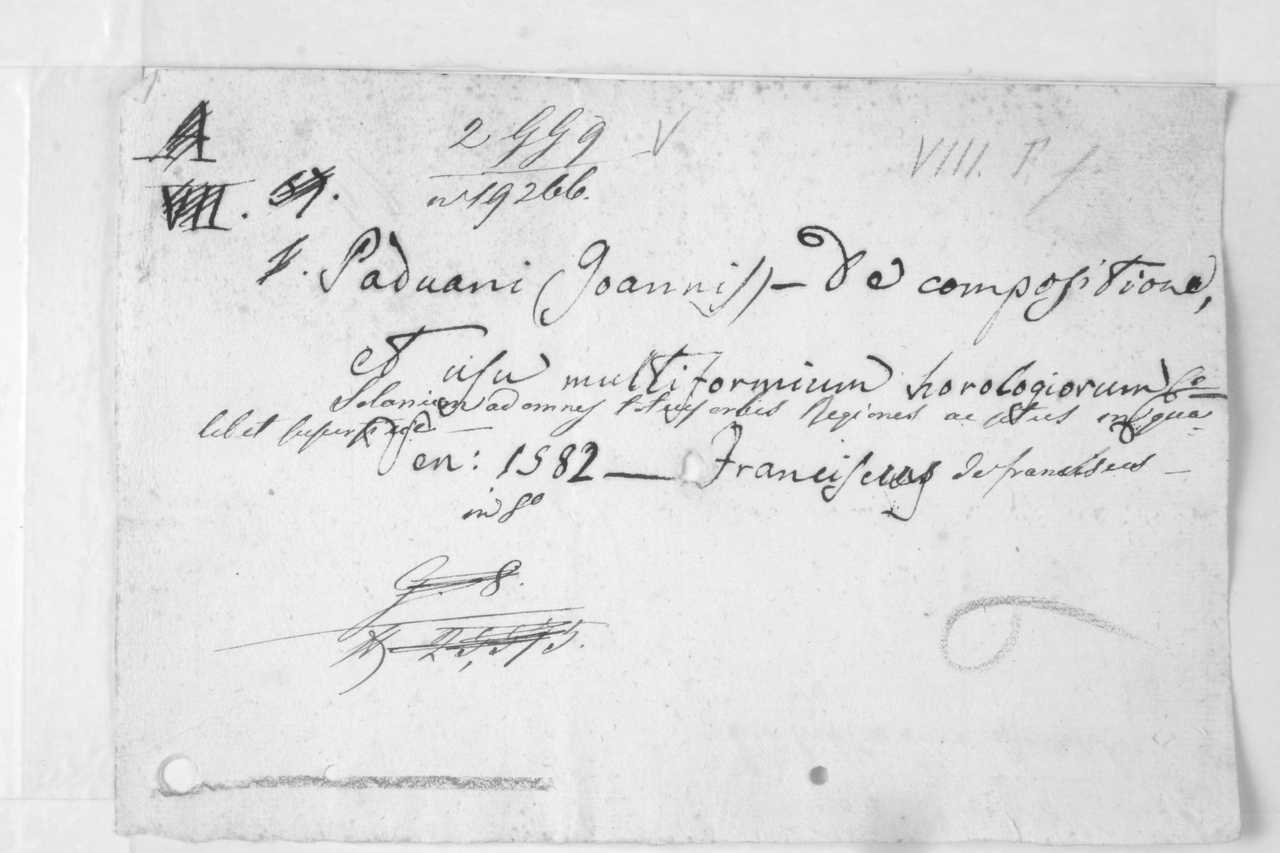 2 GGg V
VIII. P.
A
VIII. 
n° 19266.
Paduani (Joannis) — De compositione,
et usu multiformium horologiorum So=
larium ad omnes totius orbis Regiones ac situs in qua=
libet superficie —
en: 1582 — Franciscus de franciscus —
in 8°
G. 8.